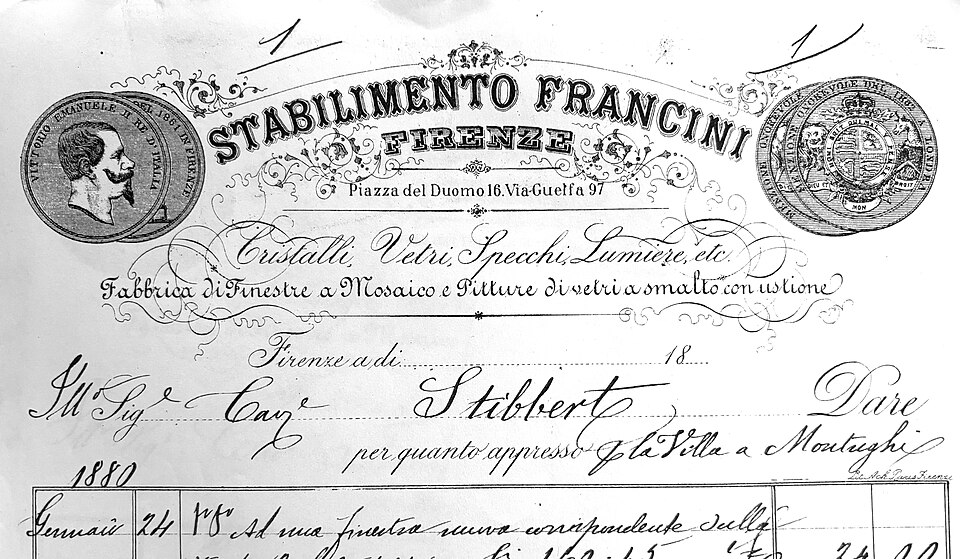 1 1
STABILIMENTO FRANCINI
FIRENZE
VITTORIO EMANUELE II RE D'ITALIA
DEL 1861 IN FIRENZE
MENZIONE ONOREVOLE DEL 1862 A LONDRA
Piazza del Duomo 16. Via Guelfa 97
Cristalli, Vetri, Specchi, Lumiere, etc.
Fabbrica di Finestre a Mosaico e Pitture di vetri a smalto con ustione
Firenze a di 18
Ill.o Sig.e Cav.e Stibbert Dare
per quanto appresso p la Villa a Montughi
1880
Gennaio 24 Ad una finestra nuova corrispondente sulla